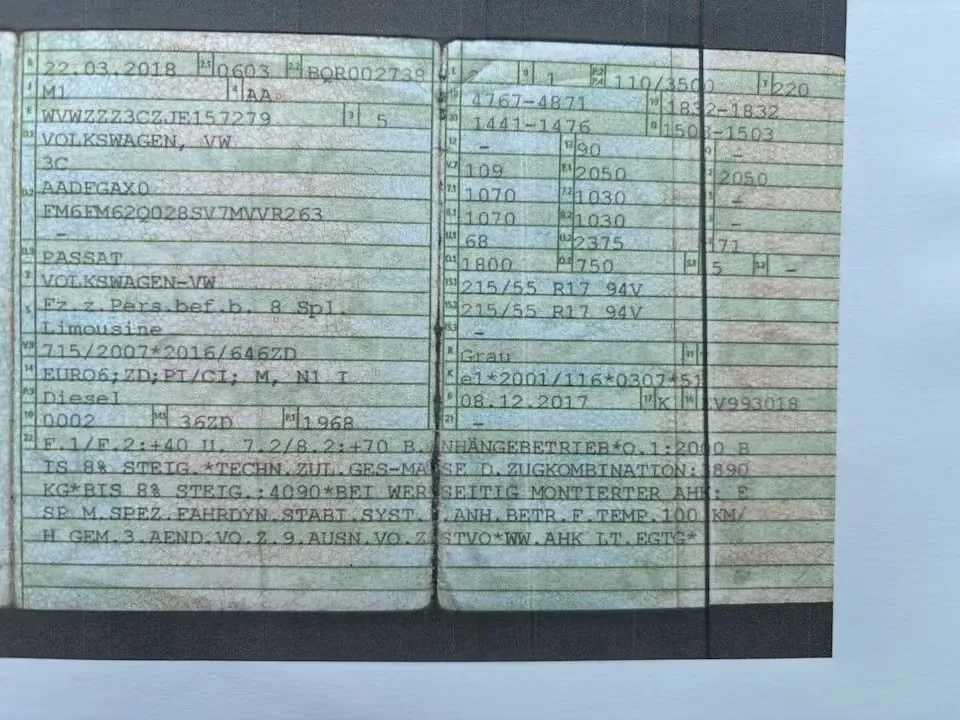 B 22.03.2018 2.1 0603 2.2 BQR002739
J M1 4 AA
E WVWZZZ3CZJE157279 3 5
D.1 VOLKSWAGEN, VW
3C
D.2 AADFGAX0
FM6FM62Q028SV7MVVR263
-
D.3 PASSAT
2 VOLKSWAGEN-VW
5 Fz.z.Pers.bef.b. 8 Spl.
Limousine
V.9 715/2007*2016/646ZD
14 EURO6;ZD;PI/CI; M, N1 I
P.3 Diesel
10 0002 14.1 36ZD P.1 1968
L 9 1 P.2 P.4 110/3500 T 220
18 4767-4871 19 1832-1832
20 1441-1476 G 1503-1503
12 - 13 90 Q -
V.7 109 F.1 2050 F.2 2050
7.1 1070 7.2 1030 -
8.1 1070 8.2 1030 -
U.1 68 U.2 2375 71
O.1 1800 O.2 750 S.1 5 S.2 -
15.1 215/55 R17 94V
15.2 215/55 R17 94V
15.3 -
R Grau 11
K e1*2001/116*0307*51
6 08.12.2017 17 K 16 V993018
21 -
22 F.1/F.2:+40 U. 7.2/8.2:+70 B. NHÄNGEBETRIEB*O.1:2000 B
IS 8% STEIG.*TECHN.ZUL.GES-MA SE D.ZUGKOMBINATION:3890
KG*BIS 8% STEIG.:4090*BEI WER SEITIG MONTIERTER AHK: E
SP M.SPEZ.FAHRDYN.STABI.SYST. .ANH.BETR.F.TEMP.100 KM/
H GEM.3.AEND.VO.Z.9.AUSN.VO.Z STVO*WW.AHK LT.EGTG*